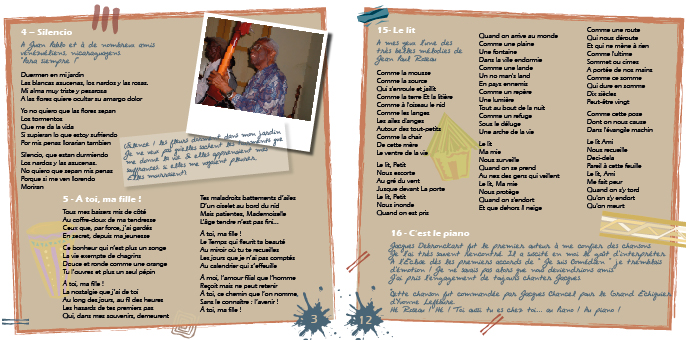 4 – Silencio
A Juan Pablo et à de nombreux amis
vénézuéliens, nicaraguayens.
"Para siempre !"
Duermen en mi jardin
Las blancas azucenas, los nardos y las rosas.
Mi alma muy triste y pesarosa
A las flores quiere ocultar su amargo dolor
Yo no quiero que las flores sepan
Los tormentos
Que me da la vida
Si supieran lo que estoy sufriendo
Por mis penas llorarian tambien
Silencio, que estan durmiendo
Los nardos y las azucenas.
No quiero que sepan mis penas
Porque si me ven llorendo
Moriran
Silence ! les fleurs dorment dans mon jardin
Je ne veux pas qu'elles sachent les tourments que
me donne la vie. Si elles apprenaient mes
souffrances si elles me voyaient pleurer
Elles mourraient
5 - A toi, ma fille !
Tous mes baisers mis de côté
Au coffre-doux de ma tendresse
Ceux que, par force, j'ai gardés
En secret, depuis ma jeunesse
Ce bonheur qui n'est plus un songe
La vie exempte de chagrins
Douce et ronde comme une orange
Tu l'ouvres et plus un seul pépin
À toi, ma fille !
La nostalgie que j'ai de toi
Au long des jours, au fil des heures
Les hasards de tes premiers pas
Qui, dans mes souvenirs, demeurent
Tes maladroits battements d'ailes
D'un oiselet au bord du nid
Mais patientes, Mademoiselle
L'âge tendre n'est pas fini...
À toi, ma fille !
Le Temps qui fleurit ta beauté
Au miroir où tu te recueilles
Les jours que je n'ai pas comptés
Au calendrier qui s'effeuille
À moi, l'amour filial que l'homme
Reçoit mais ne peut retenir
À toi, ce chemin que l'on nomme,
Sans le connaître : l'avenir !
À toi, ma fille !
3
15- Le lit
A mes yeux l'une des
très belles mélodies de
Jean Paul Roseau
Comme la mousse
Comme la source
Qui s'enroule et jaillit
Comme la terre Et la litière
Comme à l'oiseau le nid
Comme les langes
Les ailes d'anges
Autour des tout-petits
Comme la chair
De cette mère
Le ventre de la vie
Le lit, Petit
Nous escorte
Au gré du vent
Jusque devant La porte
Le lit, Petit
Nous inonde
Quand on est pris
Quand on arrive au monde
Comme une plaine
Une fontaine
Dans la ville endormie
Comme une lande
Un no man's land
En pays ennemis
Comme un repère
Une lumière
Tout au bout de la nuit
Comme un refuge
Sous le déluge
Une arche de la vie
Le lit
Ma mie
Nous surveille
Quand on se prend
Au nez des gens qui veillent
Le lit, Ma mie
Nous protège
Quand on s'endort
Et que dehors Il neige
Comme une route
Qui nous déroute
Et qui ne mène à rien
Comme l'ultime
Sommet ou cimes
À portée de nos mains
Comme ce somme
Qui dure en somme
Dix siècles
Peut-être vingt
Comme cette pose
Dont on nous cause
Dans l'évangile machin
Le lit Ami
Nous recueille
Deci-dela
Pareil à cette feuille
Le lit, Ami
Me fait peur
Quand on s'y tord
Qu'on s'y endort
Qu'on meurt
16 - C'est le piano
Jacques Debronckart fut le premier auteur à me confier des chansons
Je l'ai très souvent rencontré. Il a suscité en moi le goût d'interpréter
A l'écoute dès les premiers accords de " Je suis Comédien " je tremblais
d'émotion ! Je ne savais pas alors que nous deviendrions amis
J'ai pris l'engagement de toujours chanter Jacques
Cette chanson fut commandée par Jacques Chancel pour le Grand Echiquier
d'honne Lefebure
Hé Roseau ! Hé ! Toi aussi tu es chez toi... au piano ! Au piano !
12